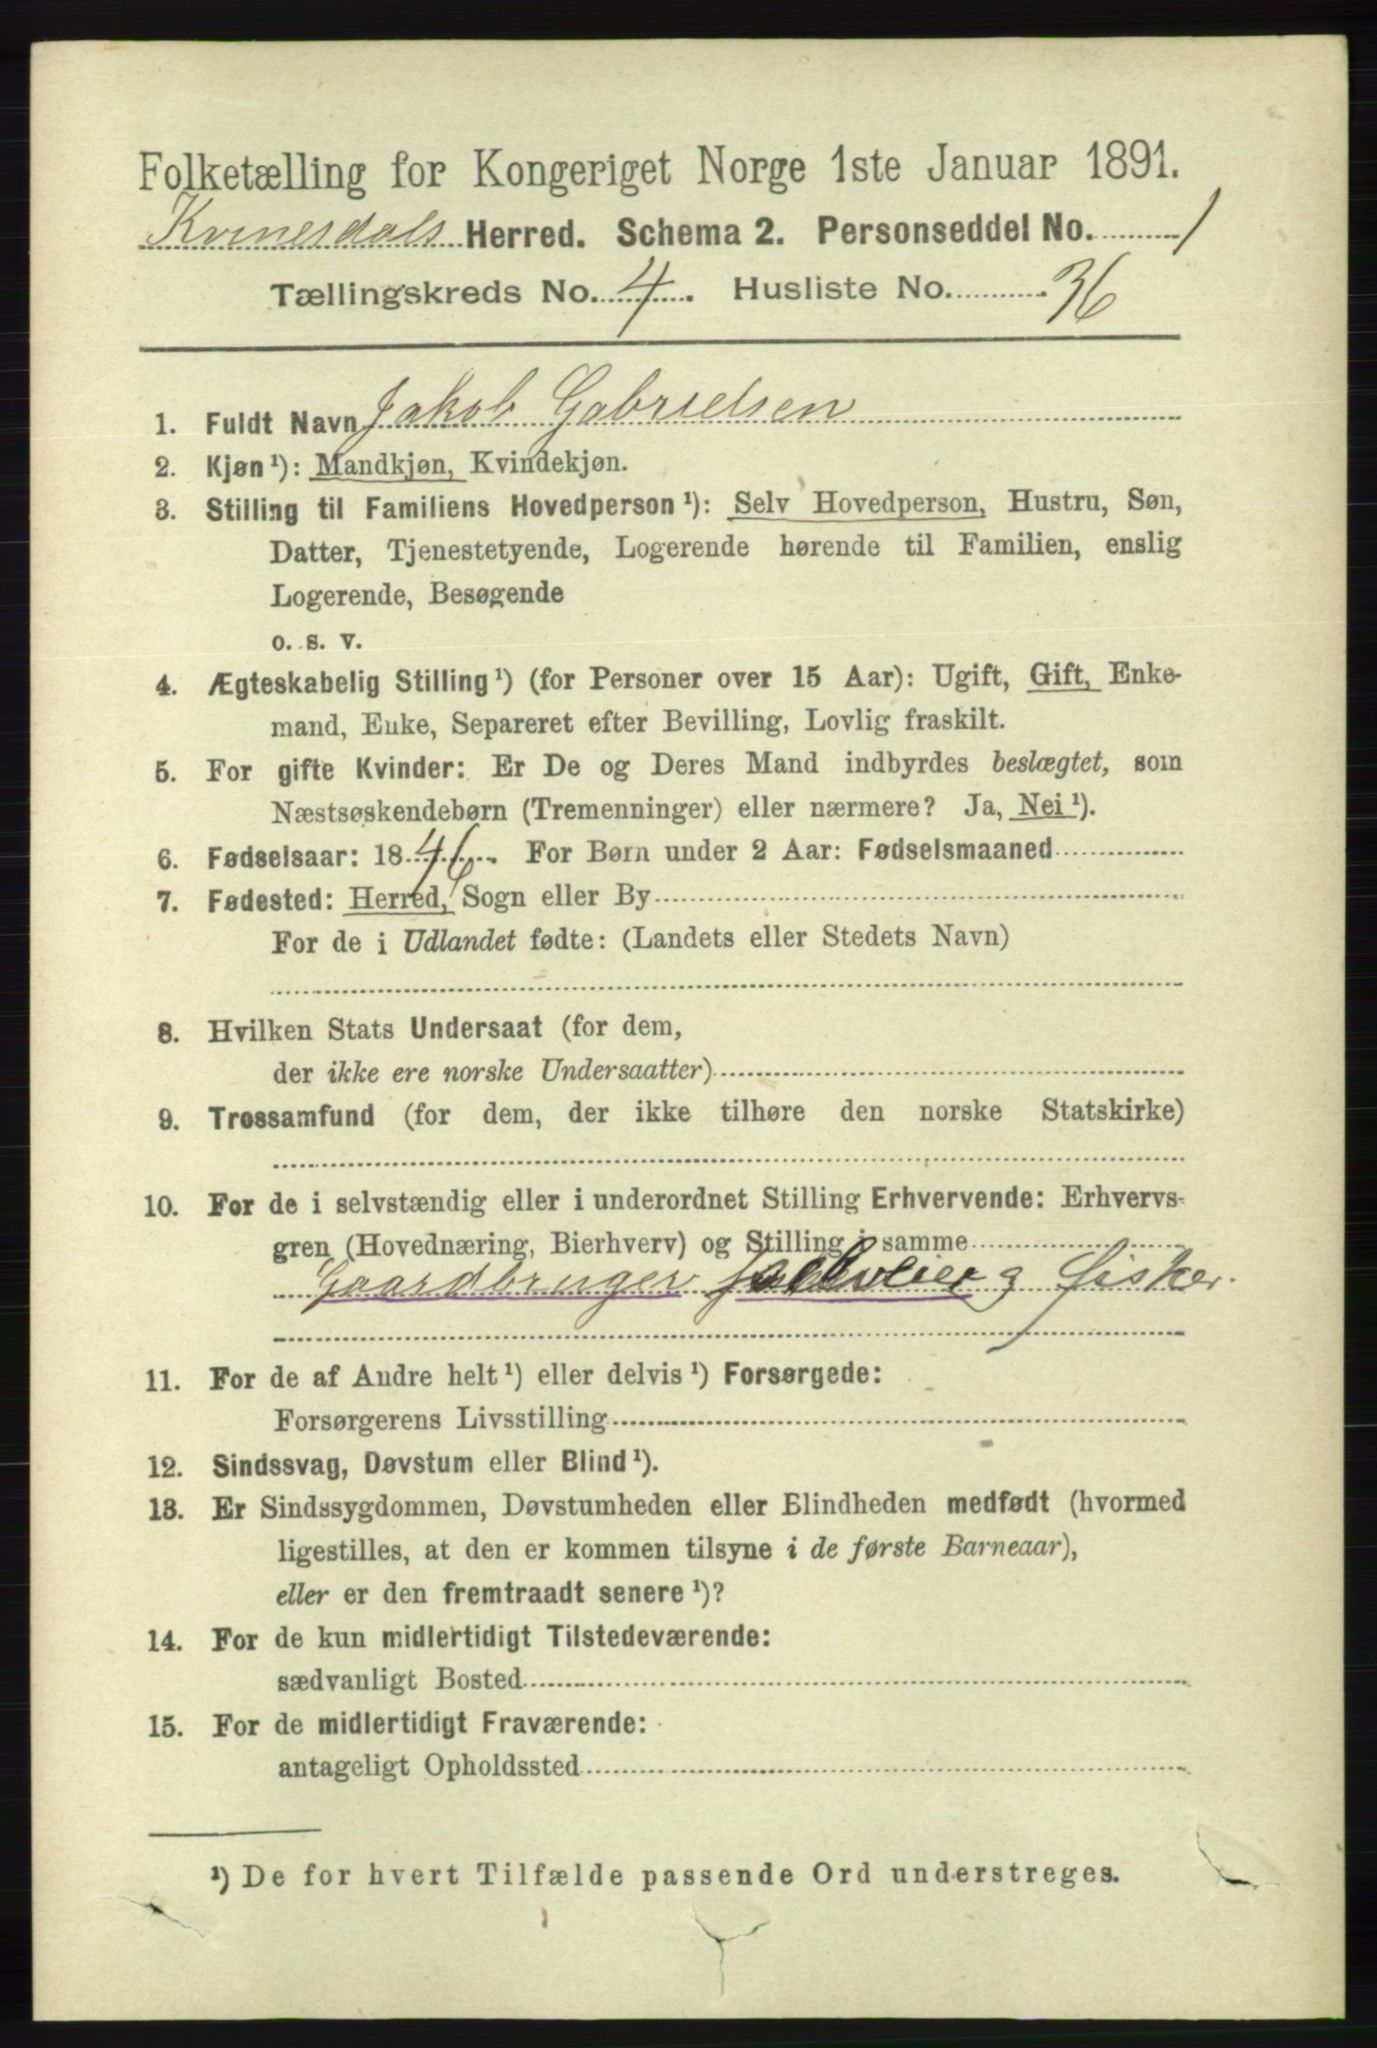 Folketælling for Kongeriget Norge 1ste Januar 1891.
Kvinesdals Herred. Schema 2. Personseddel No. 1
Tællingskreds No. 4. Husliste No. 36
1. Fuldt Navn Jakob Gabrielsen
2. Kjøn ¹): Mandkjøn, Kvindekjøn.
3. Stilling til Familiens Hovedperson ¹): Selv Hovedperson, Hustru, Søn,
Datter, Tjenestetyende, Logerende hørende til Familien, enslig
Logerende, Besøgende
o. s. v.
4. Ægteskabelig Stilling ¹) (for Personer over 15 Aar): Ugift, Gift, Enke-
mand, Enke, Separeret efter Bevilling, Lovlig fraskilt.
5. For gifte Kvinder: Er De og Deres Mand indbyrdes beslægtet, som
Næstsøskendebørn (Tremenninger) eller nærmere? Ja, Nei ¹).
6. Fødselsaar: 1846. For Børn under 2 Aar: Fødselsmaaned
7. Fødested: Herred, Sogn eller By
For de i Udlandet fødte: (Landets eller Stedets Navn)
8. Hvilken Stats Undersaat (for dem,
der ikke ere norske Undersaatter)
9. Trossamfund (for dem, der ikke tilhøre den norske Statskirke)
10. For de i selvstændig eller i underordnet Stilling Erhvervende: Erhvervs-
gren (Hovednæring, Bierhverv) og Stilling i samme
Gaardbruger Selveier og fisker.
11. For de af Andre helt ¹) eller delvis ¹) Forsørgede:
Forsørgerens Livsstilling
12. Sindssvag, Døvstum eller Blind ¹).
13. Er Sindssygdommen, Døvstumheden eller Blindheden medfødt (hvormed
ligestilles, at den er kommen tilsyne i de første Barneaar),
eller er den fremtraadt senere ¹)?
14. For de kun midlertidigt Tilstedeværende:
sædvanligt Bosted
15. For de midlertidigt Fraværende:
antageligt Opholdssted
¹) De for hvert Tilfælde passende Ord understreges.